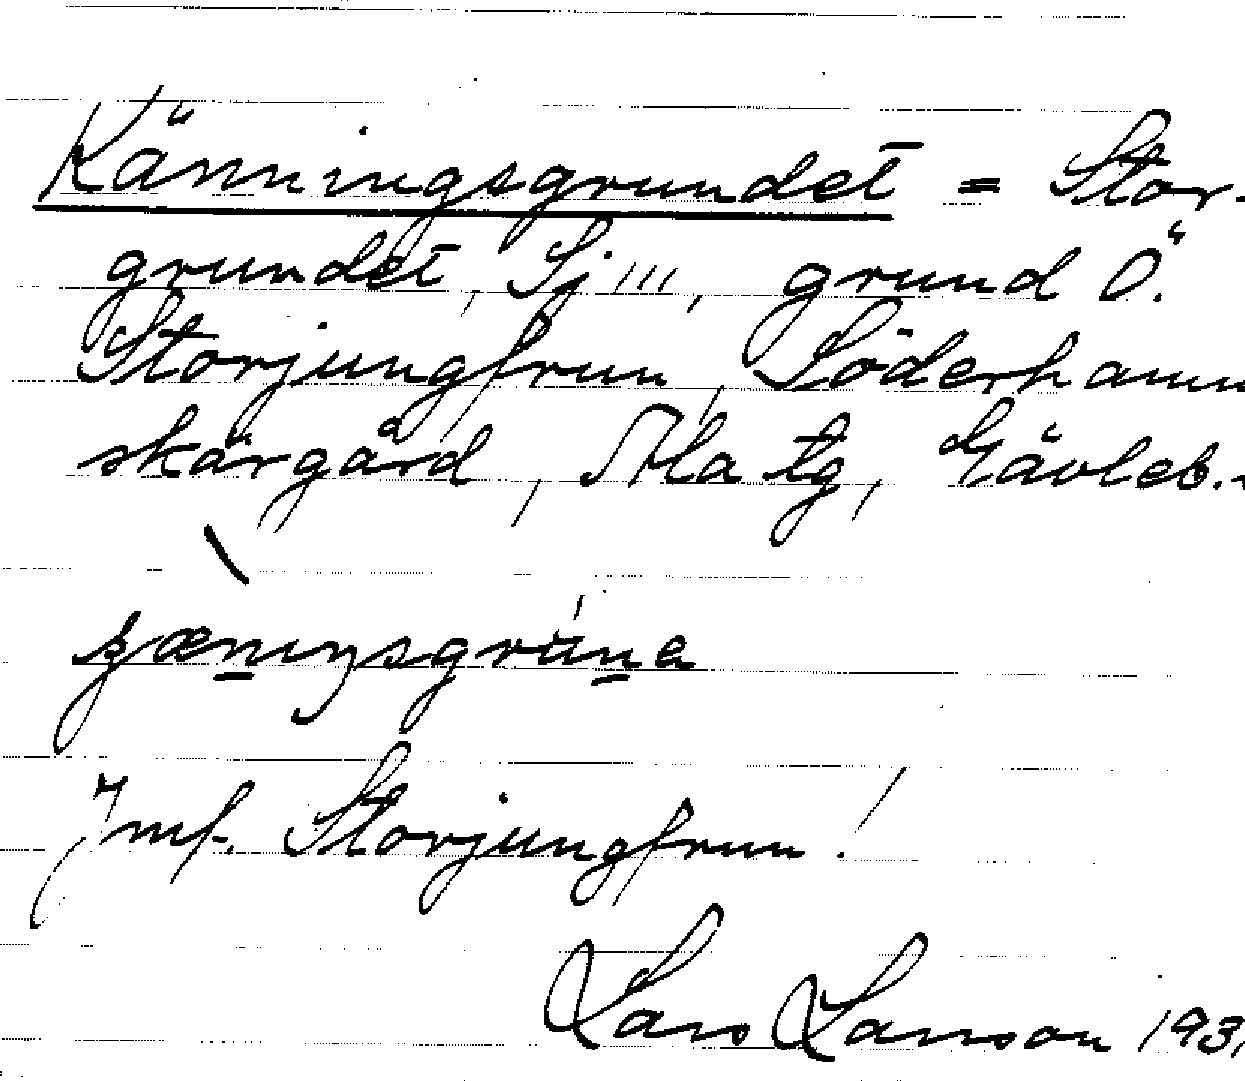 Känningsgrundet = Stor-
grundet, Sj ''', grund Ö.
Storjungfrun, Söderhamn
skärgård, Ala tg, Gävleb.
Jmf. Storjungfrun!
Lars Larsson 193